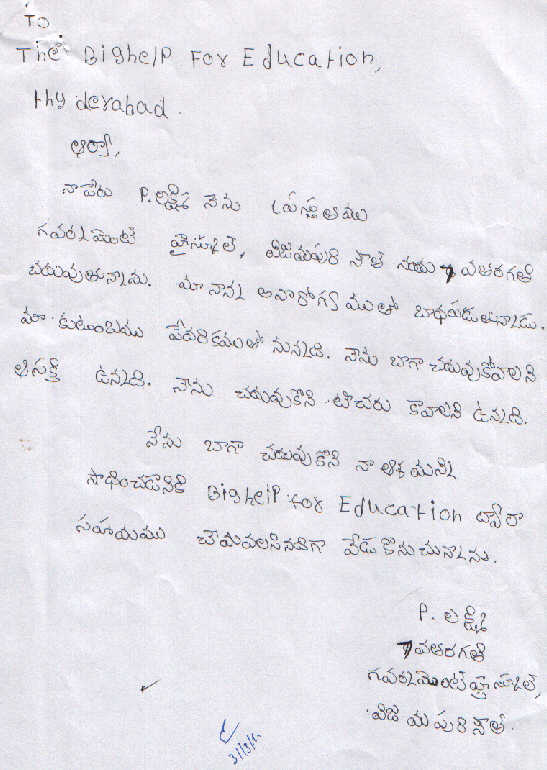 To
The Bighelp For Education,
Hyderabad.
ఆర్యా,
నా పేరు P.లక్ష్మి నేను ప్రస్తుతము
గవర్నమెంట్ హైస్కూల్, విజయపురి సౌత్ నందు 7వతరగతి
చదువుతున్నాను. మా నాన్న అనారోగ్యముతో బాధపడుతున్నాడు.
మా కుటుంబము పేదరికములో నున్నది. నేను బాగా చదువుకోవాలని
ఆసక్తి ఉన్నది. నేను చదువుకొని టీచరు కావాలని ఉన్నది.
నేను బాగా చదువుకొని నా ఆశయాన్ని
సాధించడానికి Bighelp for Education ద్వారా
సహాయము చేయవలసినదిగా వేడుకొనుచున్నాను.
P. లక్ష్మి
7వతరగతి
గవర్నమెంట్ హైస్కూల్,
విజయపురిసౌత్.